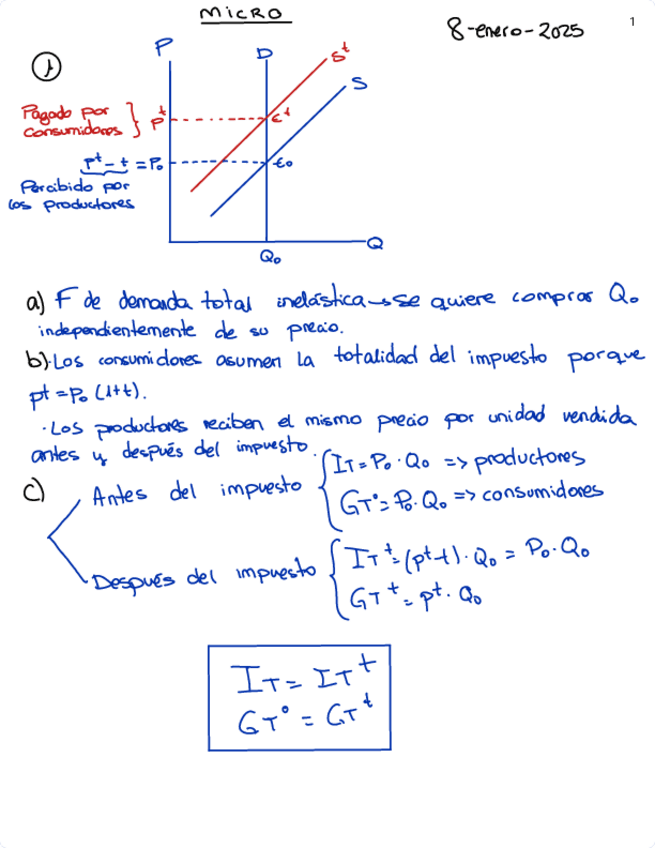 MICRO
8-enero-2025
1
1
P
D
Sᵗ
S
Pagado por
consumidores } Pᵗ
Eᵗ
Pᵗ - t = P₀
E₀
Percibido por
los productores
Q₀
Q
a) F de demanda total inelástica → se quiere comprar Q₀
independientemente de su precio.
b) · Los consumidores asumen la totalidad del impuesto porque
pt = P₀ (1+t).
· Los productores reciben el mismo precio por unidad vendida
antes y después del impuesto.
c) Antes del impuesto { IT = P₀ · Q₀ => productores
GT⁰ = P₀ · Q₀ => consumidores
Después del impuesto { ITᵗ = (pᵗ-t) · Q₀ = P₀ · Q₀
GTᵗ = pᵗ · Q₀
IT = ITᵗ
GT⁰ = GTᵗ